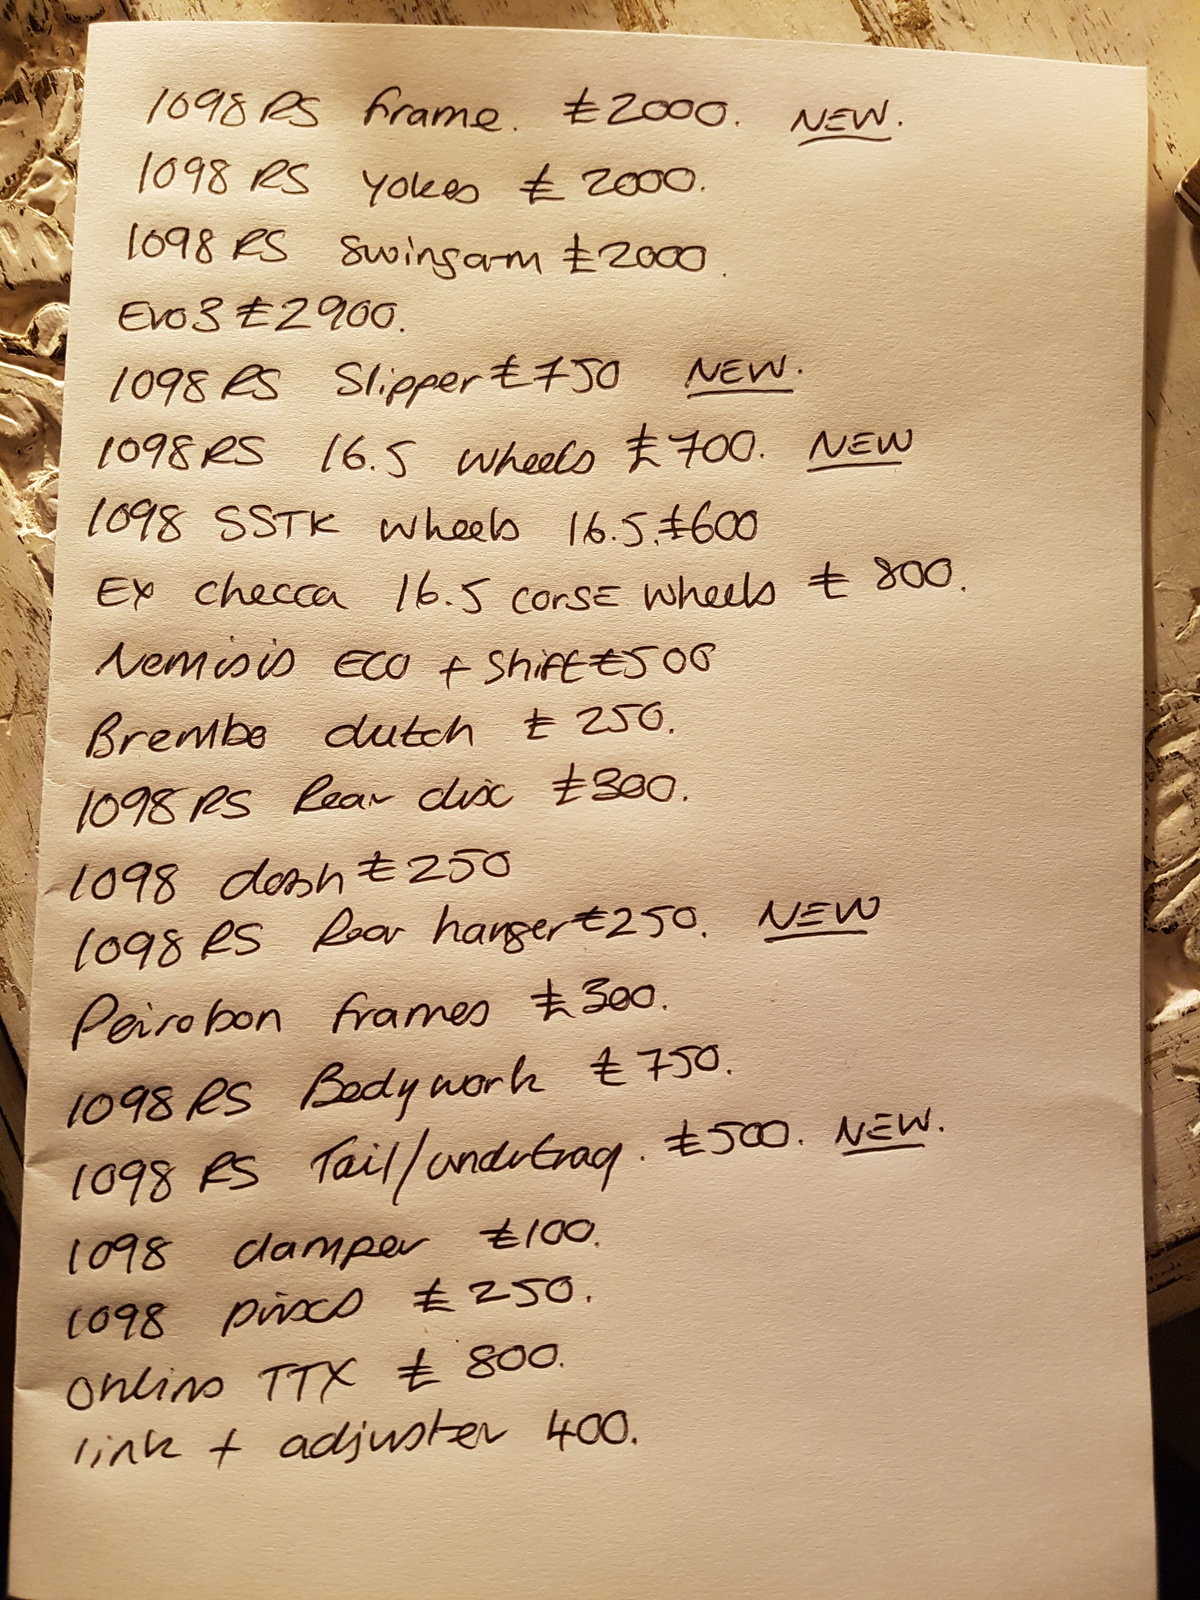 1098 RS frame. £2000. NEW.
1098 RS yokes £2000.
1098 RS Swingarm £2000.
Evo3 £2900.
1098 RS Slipper £750 NEW.
1098 RS 16.5 wheels £700. NEW
1098 SSTK wheels 16.5. £600
Ex checca 16.5 corsE wheels £800.
Nemisis ECU + Shift £500
Brembo clutch £250.
1098 RS Rear disc £300.
1098 dash £250
1098 RS Rear hanger £250. NEW
Peirobon frames £300.
1098 RS Bodywork £750.
1098 RS Tail/undertray. £500. NEW.
1098 damper £100.
1098 Discs £250.
Ohlins TTX £800.
link + adjuster 400.